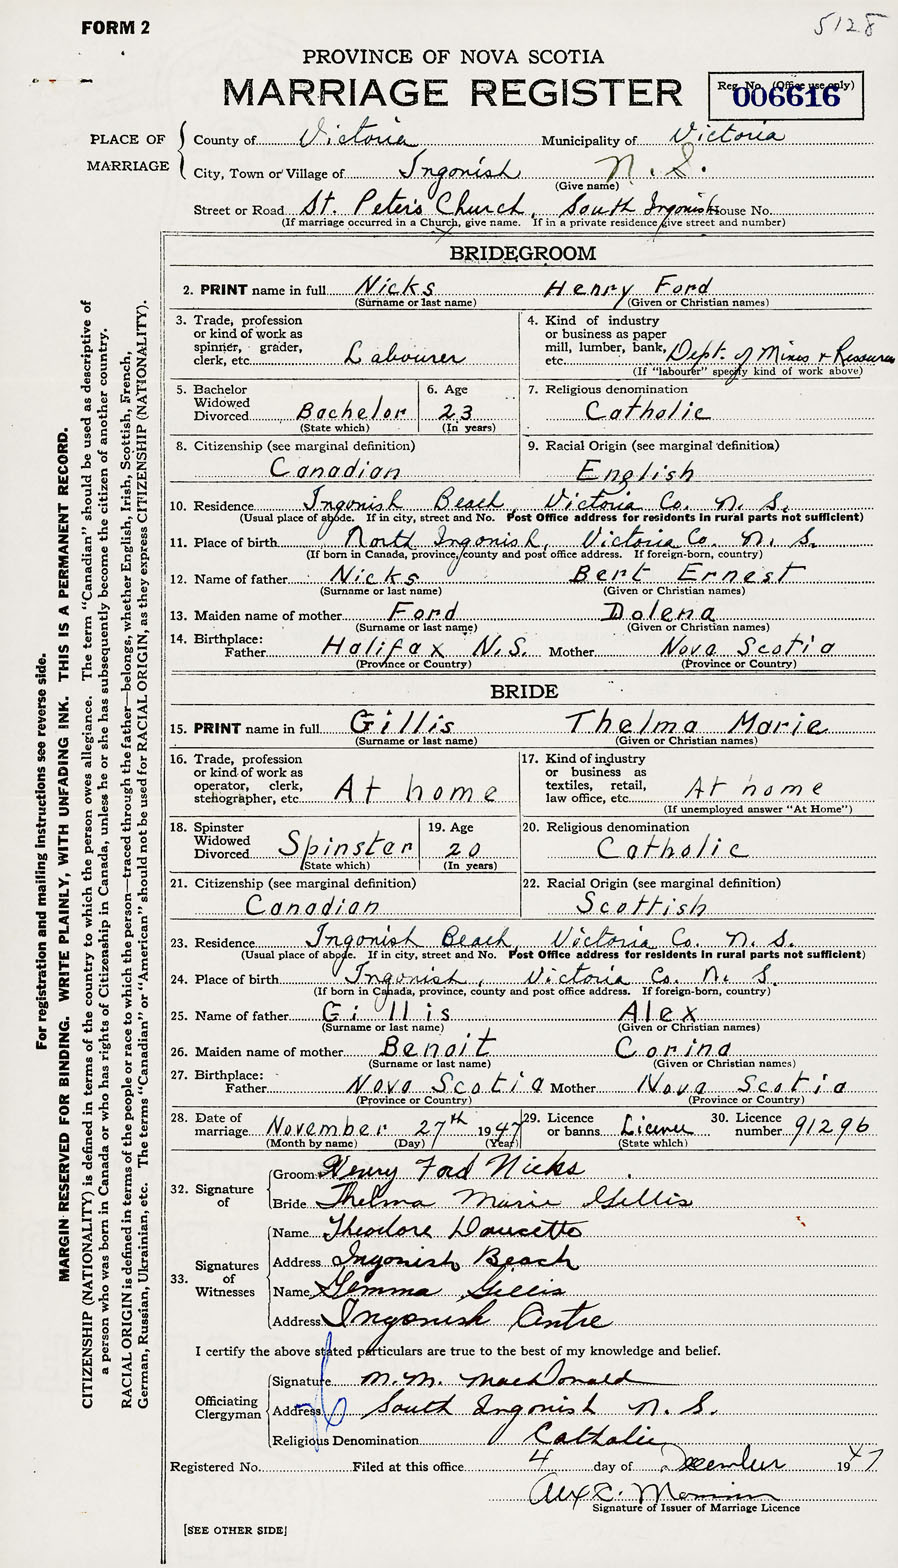 FORM 2
5128
PROVINCE OF NOVA SCOTIA
MARRIAGE REGISTER
Reg. No. (Office use only)
006616
PLACE OF MARRIAGE
County of Victoria Municipality of Victoria
City, Town or Village of Ingonish N. S.
(Give name)
Street or Road St. Peter's Church, South Ingonish House No.
(If marriage occurred in a Church, give name. If in a private residence give street and number)
BRIDEGROOM
2. PRINT name in full Nicks Henry Ford
(Surname or last name) (Given or Christian names)
3. Trade, profession or kind of work as spinner, grader, clerk, etc. Labourer
4. Kind of industry or business as paper mill, lumber, bank, etc. Dept. of Mines & Resources
(If "labourer" specify kind of work above)
5. Bachelor Widowed Divorced Bachelor
(State which)
6. Age 23
(In years)
7. Religious denomination
Catholic
8. Citizenship (see marginal definition)
Canadian
9. Racial Origin (see marginal definition)
English
10. Residence Ingonish Beach, Victoria Co. N. S.
(Usual place of abode. If in city, street and No. Post Office address for residents in rural parts not sufficient)
11. Place of birth North Ingonish, Victoria Co. N. S.
(If born in Canada, province, county and post office address. If foreign-born, country)
12. Name of father Nicks Bert Ernest
(Surname or last name) (Given or Christian names)
13. Maiden name of mother Ford Dolena
(Surname or last name) (Given or Christian names)
14. Birthplace:
Father Halifax N.S. Mother Nova Scotia
(Province or Country) (Province or Country)
BRIDE
15. PRINT name in full Gillis Thelma Marie
(Surname or last name) (Given or Christian names)
16. Trade, profession or kind of work as operator, clerk, stenographer, etc. At home
17. Kind of industry or business as textiles, retail, law office, etc. At home
(If unemployed answer "At Home")
18. Spinster Widowed Divorced Spinster
(State which)
19. Age 20
(In years)
20. Religious denomination
Catholic
21. Citizenship (see marginal definition)
Canadian
22. Racial Origin (see marginal definition)
Scottish
23. Residence Ingonish Beach, Victoria Co. N. S.
(Usual place of abode. If in city, street and No. Post Office address for residents in rural parts not sufficient)
24. Place of birth Ingonish, Victoria Co. N. S.
(If born in Canada, province, county and post office address. If foreign-born, country)
25. Name of father Gillis Alex
(Surname or last name) (Given or Christian names)
26. Maiden name of mother Benoit Corina
(Surname or last name) (Given or Christian names)
27. Birthplace:
Father Nova Scotia Mother Nova Scotia
(Province or Country) (Province or Country)
28. Date of marriage November 27th 1947
(Month by name) (Day) (Year)
29. Licence or banns License
(State which)
30. Licence number 91296
32. Signature of
Groom Henry Ford Nicks
Bride Thelma Marie Gillis
33. Signatures of Witnesses
Name Theodore Doucette
Address Ingonish Beach
Name Gemma Gillis
Address Ingonish Centre
I certify the above stated particulars are true to the best of my knowledge and belief.
Officiating Clergyman
Signature M. M. MacDonald
Address South Ingonish N. S.
Religious Denomination Catholic
Registered No. Filed at this office 4 day of December 1947
Signature of Issuer of Marriage Licence
[SEE OTHER SIDE]
For registration and mailing instructions see reverse side.
MARGIN RESERVED FOR BINDING. WRITE PLAINLY, WITH UNFADING INK. THIS IS A PERMANENT RECORD.
CITIZENSHIP (NATIONALITY) is defined in terms of the country to which the person owes allegiance. The term "Canadian" should be used as descriptive of
a person who was born in Canada or who has rights of Citizenship in Canada, unless he or she has subsequently become the citizen of another country.
RACIAL ORIGIN is defined in terms of the people or race to which the person—traced through the father—belongs, whether English, Irish, Scottish, French,
German, Russian, Ukrainian, etc. The terms "Canadian" or "American" should not be used for RACIAL ORIGIN, as they express CITIZENSHIP (NATIONALITY).